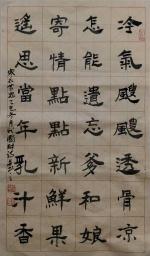 冷氣颼颼透骨涼
怎能遺忘爹和娘
寄情點點新鮮果
遙思當年乳汁香